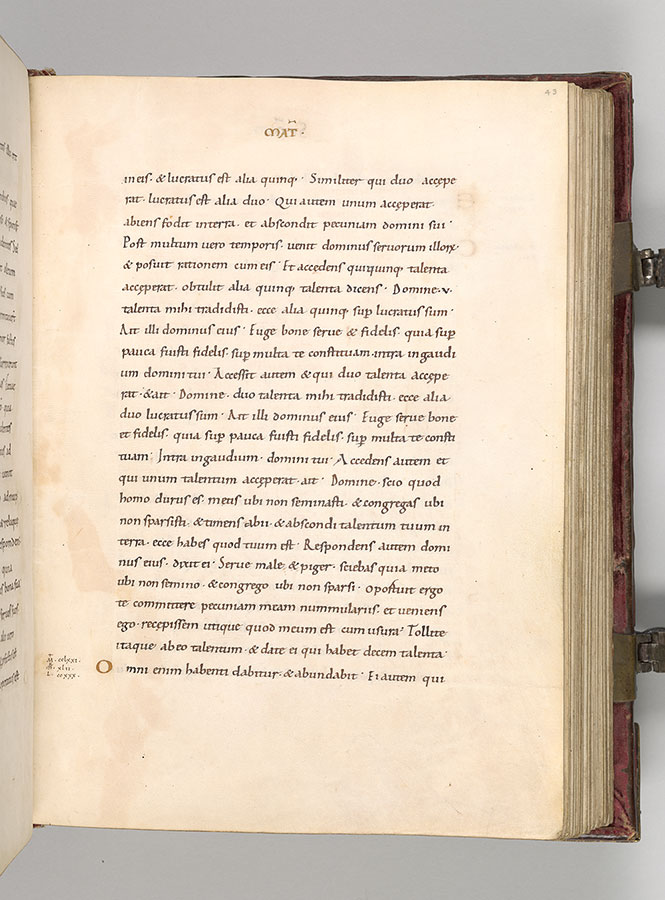 43
MAT̄ ·
in eis · & lucratus est alia quinq; · Similiter qui duo accępe
rat · lucratus est alia duo · Qui autem unum accęperat
abiens fodit in terra · et abscondit pecuniam domini sui ·
Post multum uero temporis · uenit dominus seruorum illoꝝ ·
& posuit rationem cum eis · Et accedens qui quinq; talenta
accęperat · obtulit alia quinq; talenta dicens · Domine · v ·
talenta mihi tradidisti · ecce alia quinq; sup lucratus sum ·
Ait illi dominus eius · Euge bone serue & fidelis · quia sup
pauca fuisti fidelis · sup multa te constituam · intra in gaudi
um domini tui · Accessit autem & qui duo talenta accępe
rat · & ait · Domine · duo talenta mihi tradidisti · ecce alia
duo lucratus sum · Ait illi dominus eius · Euge serue bone
et fidelis · quia sup pauca fuisti fidelis · sup multa te consti
tuam · Intra in gaudium · domini tui · Accedens autem et
qui unum talentum accęperat · ait · Domine · scio quod
homo durus es · metis ubi non seminasti · & congregas ubi
non sparsisti · & timens abii · & abscondi talentum tuum in
terra · ecce habes quod tuum est · Respondens autem domi
nus eius · dixit ei · Serue male · & piger · sciebas quia meto
ubi non semino · & congrego ubi non sparsi · Oportuit ergo
te committere pecuniam meam nummulariis · et ueniens
ego · recępissem utique quod meum est cum usura · Tollite
itaque ab eo talentum · & date ei qui habet decem talenta ·
Omni enim habenti dabitur · & abundabit · Ei autem qui
M̄ · cclxxi ·
M̄R · xlii ·
L · ccxxx ·